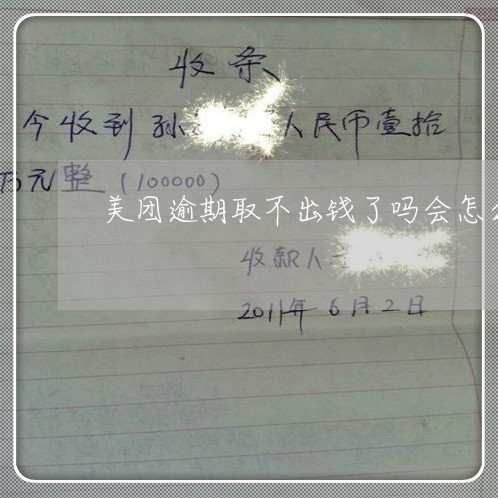 收条
今收到孙 人民币壹拾
万元整(100000)
美团逾期取不出钱了吗会怎
收款人
2011年6月2日